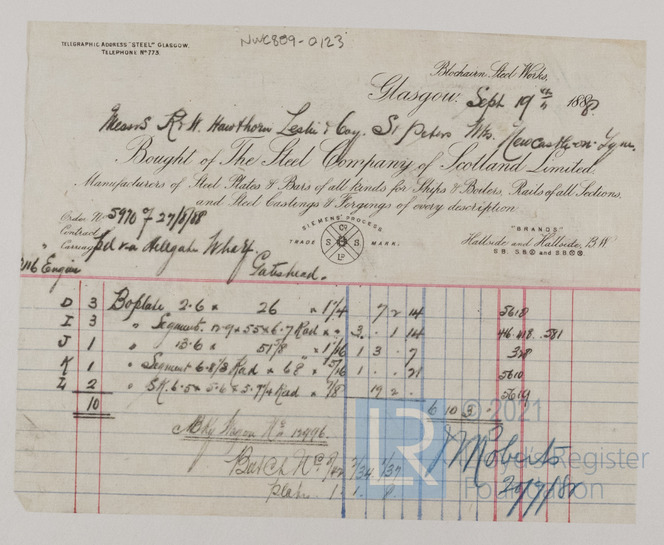 TELEGRAPHIC ADDRESS "STEEL" GLASGOW.
TELEPHONE No 773.
NWC809-0123
Blochairn Steel Works,
Glasgow, Sept 19th 1888
Messrs R & W. Hawthorn Leslie & Coy. St Peters Wks. Newcastle-on-Tyne.
Bought of The Steel Company of Scotland Limited.
Manufacturers of Steel Plates & Bars of all kinds for Ships & Boilers, Rails of all Sections,
and Steel Castings & Forgings of every description
Order No 5970 of 27/8/88
Contract
Carriage pd via Hillgate Wharf
Gateshead.
Engine
SIEMENS' PROCESS
TRADE MARK.
Co
S S
LD
"BRANDS"
Hallside and Hallside, B.W
S.B. S.B and S.B
D 3 Bo plate 2.6 x 26 x 1 1/4 7 2 14 5618
I 3 " Segment. 12.9 x 55 x 6.7 Rad x " 3 . 1 14 46.418.581
J 1 " 13.6 x 51 5/8 x 1 1/16 1 3 . 7 328
K 1 " Segment 6.8 1/3 Rad x 68 x 15/16 1 . . 21 5610
L 2 " S.K. 6.5 x 5.6 x 3.7 1/4 Rad x 7/8 19 2 . 5619
10
6 10 3 .
Wagon No 12996.
Batch No
plate 1. 1.
J Roberts
20/9/88
© 2021
LR
Lloyd's Register
Foundation